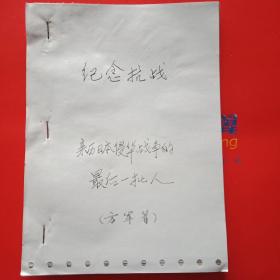 纪念抗战
亲历日本侵华战争的
最后一批人
(方军著)